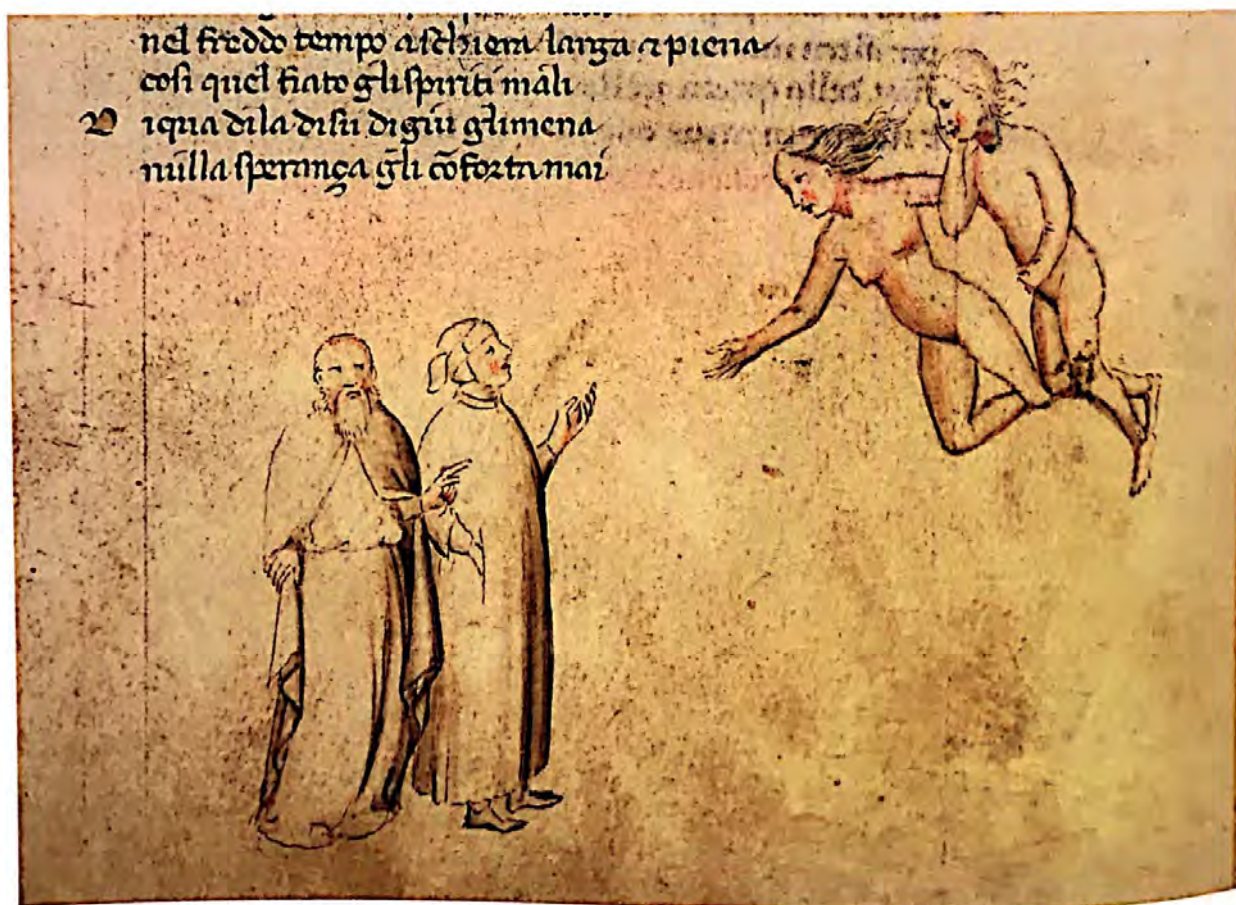 nel freddo tempo aschiera larga a piena
cosi quel fiato gli spiriti mali
D iqua dila disu digiu gli mena
nulla sperança gli cõforta mai